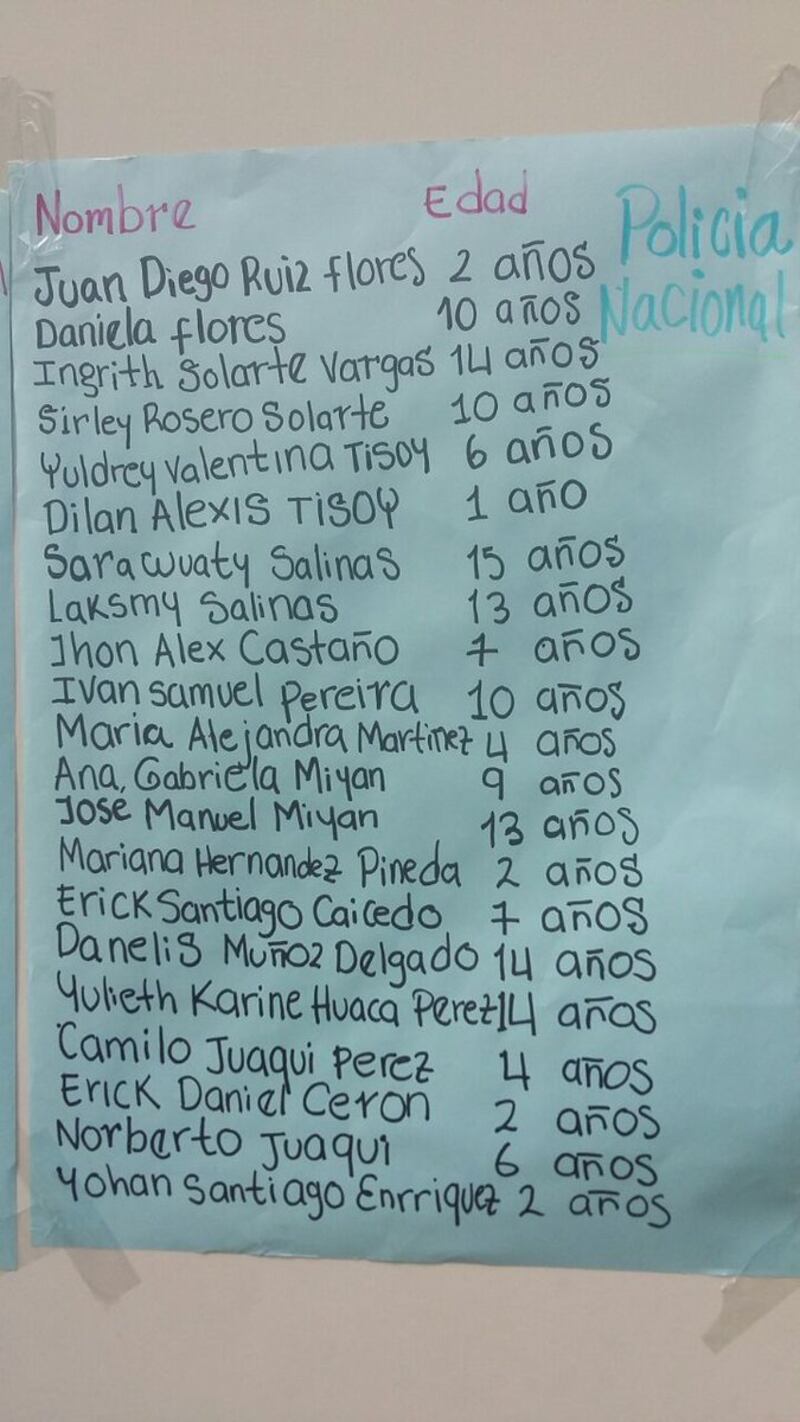 Nombre Edad Policia
Juan Diego Ruiz flores 2 años
Nacional
Daniela flores 10 años
Ingrith Solarte Vargas 14 años
Sirley Rosero Solarte 10 años
Yuldrey Valentina Tisoy 6 años
Dilan Alexis Tisoy 1 año
Sara Wuaty Salinas 15 años
Laksmy Salinas 13 años
Jhon Alex Castaño 7 años
Ivan samuel Pereira 10 años
Maria Alejandra Martinez 4 años
Ana, Gabriela Miyan 9 años
Jose Manuel Miyan 13 años
Mariana Hernandez Pineda 2 años
Erick Santiago Caicedo 7 años
Danelis Muñoz Delgado 14 años
Yulieth Karine Huaca Perez 14 años
Camilo Juaqui Perez 4 años
Erick Daniel Ceron 2 años
Norberto Juaqui 6 años
Yohan Santiago Enrriquez 2 años